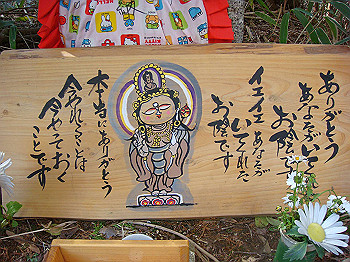 ありがとう
あなたがいて
お陰です
イエイエあなたが
いてくれた
お陰です
本当にありがとう
今やれることは
今やっておく
ことです